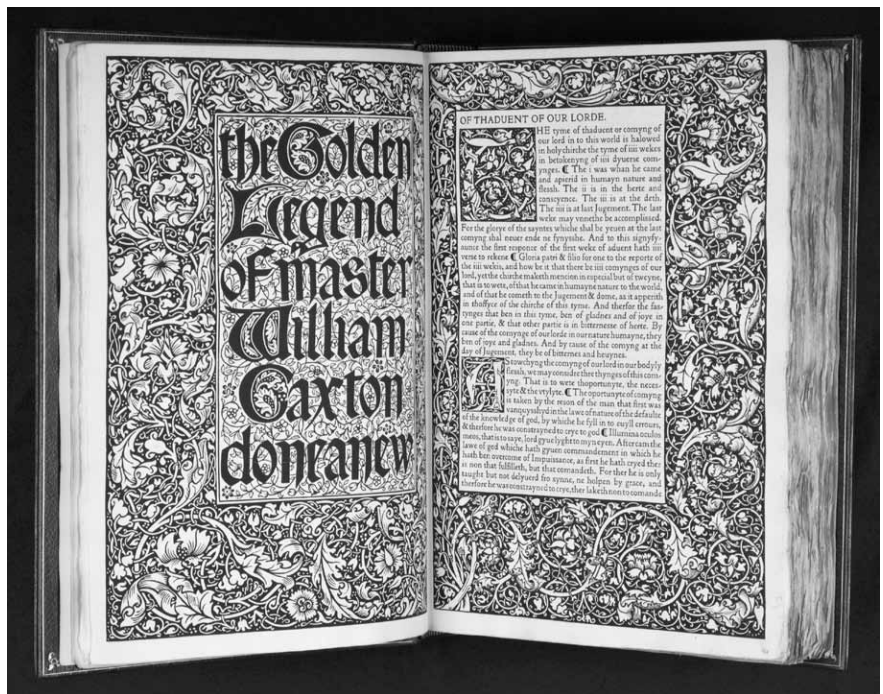 the Golden
Legend
of master
William
Caxton
done anew
OF THADUENT OF OUR LORDE.
THE tyme of thaduent or comyng of
our lord in to this world is halowed
in holy chirche the tyme of iiii wekes
in betokenyng of iiii dyuerse com-
ynges. ¶ The i was whan he came
and apierid in humayn nature and
flessh. The ii is in the herte and
conscyence. The iii is at the deth.
The iiii is at last Jugement. The last
weke may vnnethe be accomplissed.
For the glorye of the sayntes whiche shal be yeuen at the last
comyng shal neuer ende ne fynysshe. And to this signyfy-
aunce the first responce of the first weke of aduent hath iiii
verse to rekene ¶ Gloria patri & filio for one to the reporte of
the iiii wekis, and how be it that there be iiii comynges of our
lord, yet the chirche maketh mencion in especial but of tweyne,
that is to wete, of that he came in humayne nature to the world,
and of that he cometh to the Jugement & dome, as it apperith
in thoffyce of the chirche of this tyme. And therfor the fas-
tynges that ben in this tyme, ben of gladnes and of joye in
one partie, & that other partie is in bitternesse of herte. By
cause of the comynge of our lorde in our nature humayne, they
ben of joye and gladnes. And by cause of the comyng at the
day of Jugement, they be of bitternes and heuynes.
AS towchyng the comyng of our lord in our bodyly
flessh, we may considere thre thynges of this com-
yng. That is to wete thoportunyte, the neces-
syte & the vtylyte. ¶ The oportunyte of comyng
is taken by the reson of the man that first was
vanquysshyd in the lawe of nature of the defaulte
of the knowledge of god, by whiche he fyll in to euyll errours,
& therfore he was constrayned to crye to god ¶ Illumina oculos
meos, that is to saye, lord gyue lyght to myn eyen. After cam the
lawe of god whiche hath gyuen commandement in which he
hath ben overcome of Impuissance, as first he hath cryed ther
is non that fulfilleth, but that comandeth. For ther he is only
taught but not delyuerd fro synne, ne holpen by grace, and
therfore he was constrayned to crye, ther lakketh non to comande